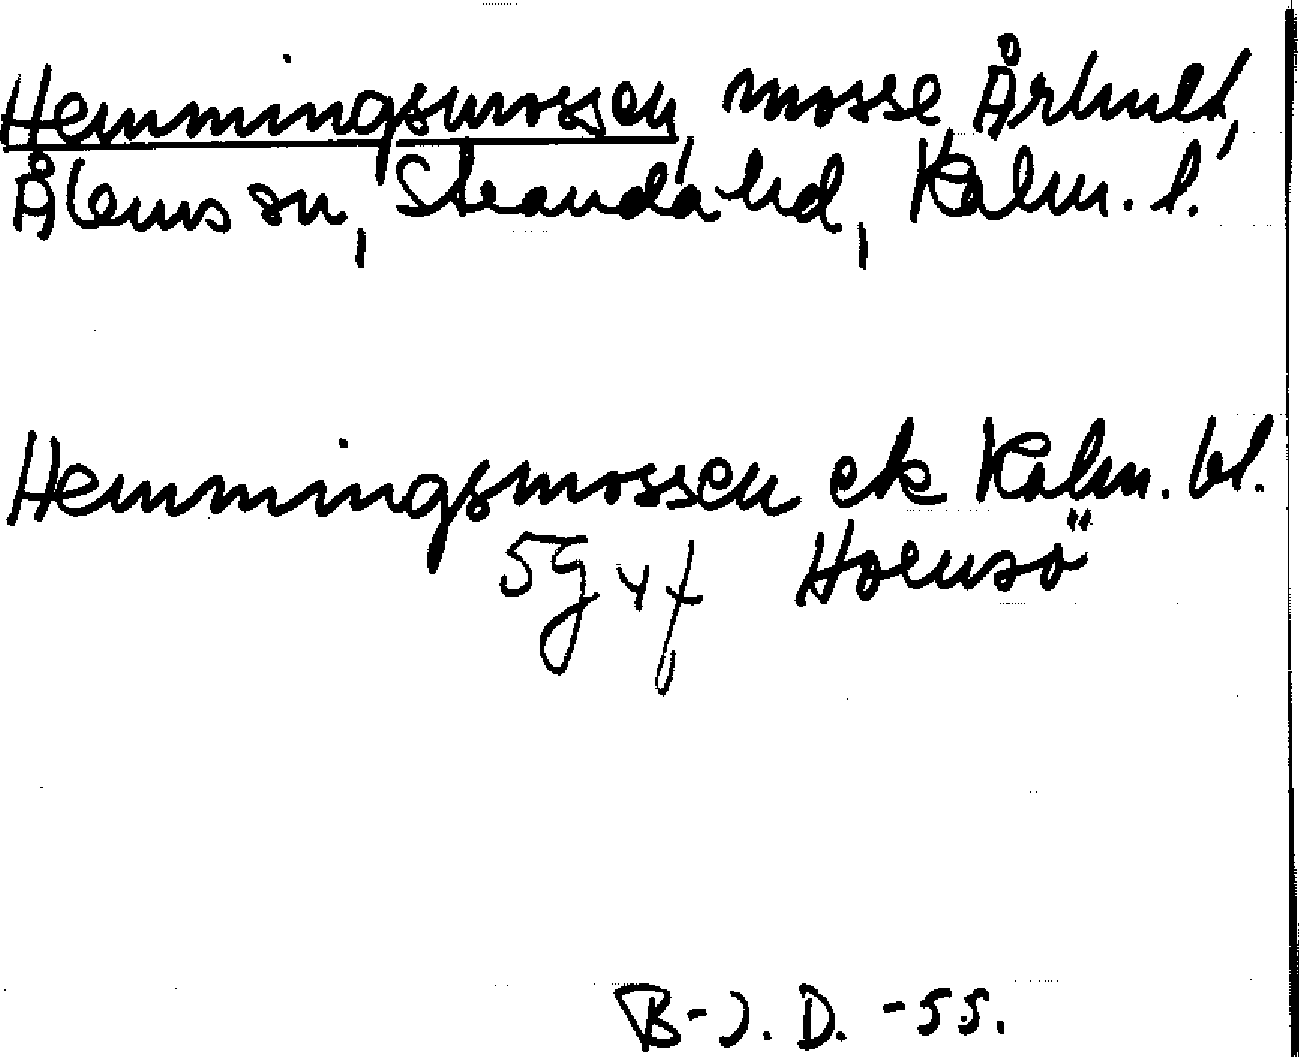 Hemmingsmossen, mosse Århult,
Ålems sn, Stranda hd, Kalm. l.
Hemmingsmossen ek Kalm. bl.
5g yf Hornsö
B-J. D. -55.